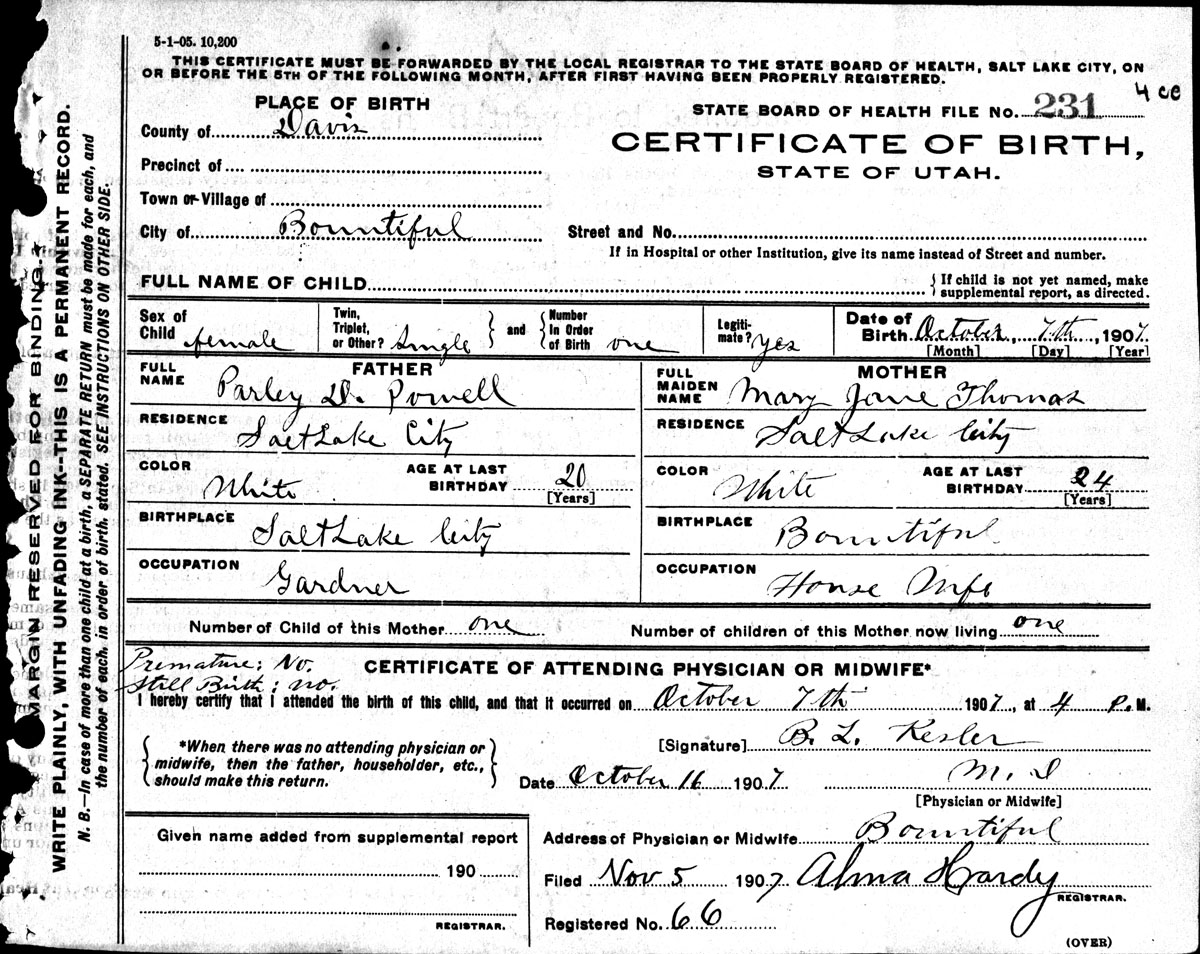 5-1-05. 10,200
THIS CERTIFICATE MUST BE FORWARDED BY THE LOCAL REGISTRAR TO THE STATE BOARD OF HEALTH, SALT LAKE CITY, ON
OR BEFORE THE 5TH OF THE FOLLOWING MONTH, AFTER FIRST HAVING BEEN PROPERLY REGISTERED.
PLACE OF BIRTH
STATE BOARD OF HEALTH FILE No. 231
County of Davis
CERTIFICATE OF BIRTH,
STATE OF UTAH.
Precinct of
Town or Village of
City of Bountiful Street and No.
If in Hospital or other Institution, give its name instead of Street and number.
FULL NAME OF CHILD { If child is not yet named, make
supplemental report, as directed.
Sex of Child female Twin, Triplet, or Other? Single and Number In Order of Birth one Legiti-mate? yes Date of Birth October 7th, 1907
[Month] [Day] [Year]
FATHER MOTHER
FULL NAME Parley D. Powell FULL MAIDEN NAME Mary Jane Thomas
RESIDENCE Salt Lake City RESIDENCE Salt Lake City
COLOR White AGE AT LAST BIRTHDAY 20 [Years] COLOR White AGE AT LAST BIRTHDAY 24 [Years]
BIRTHPLACE Salt Lake City BIRTHPLACE Bountiful
OCCUPATION Gardner OCCUPATION House Wife
Number of Child of this Mother one Number of children of this Mother now living one
Premature: No.
Still Birth: no.
CERTIFICATE OF ATTENDING PHYSICIAN OR MIDWIFE*
I hereby certify that I attended the birth of this child, and that it occurred on October 7th 1907, at 4 P.M.
*When there was no attending physician or
midwife, then the father, householder, etc.,
should make this return.
[Signature] B. L. Kesler
Date October 16 1907 M. D
[Physician or Midwife]
Given name added from supplemental report
190
REGISTRAR.
Address of Physician or Midwife Bountiful
Filed Nov 5 1907 Alma Hardy
REGISTRAR.
Registered No. 66
(OVER)
MARGIN RESERVED FOR BINDING.
WRITE PLAINLY, WITH UNFADING INK--THIS IS A PERMANENT RECORD.
N. B.—In case of more than one child at a birth, a SEPARATE RETURN must be made for each, and
the number of each, in order of birth, stated. SEE INSTRUCTIONS ON OTHER SIDE.